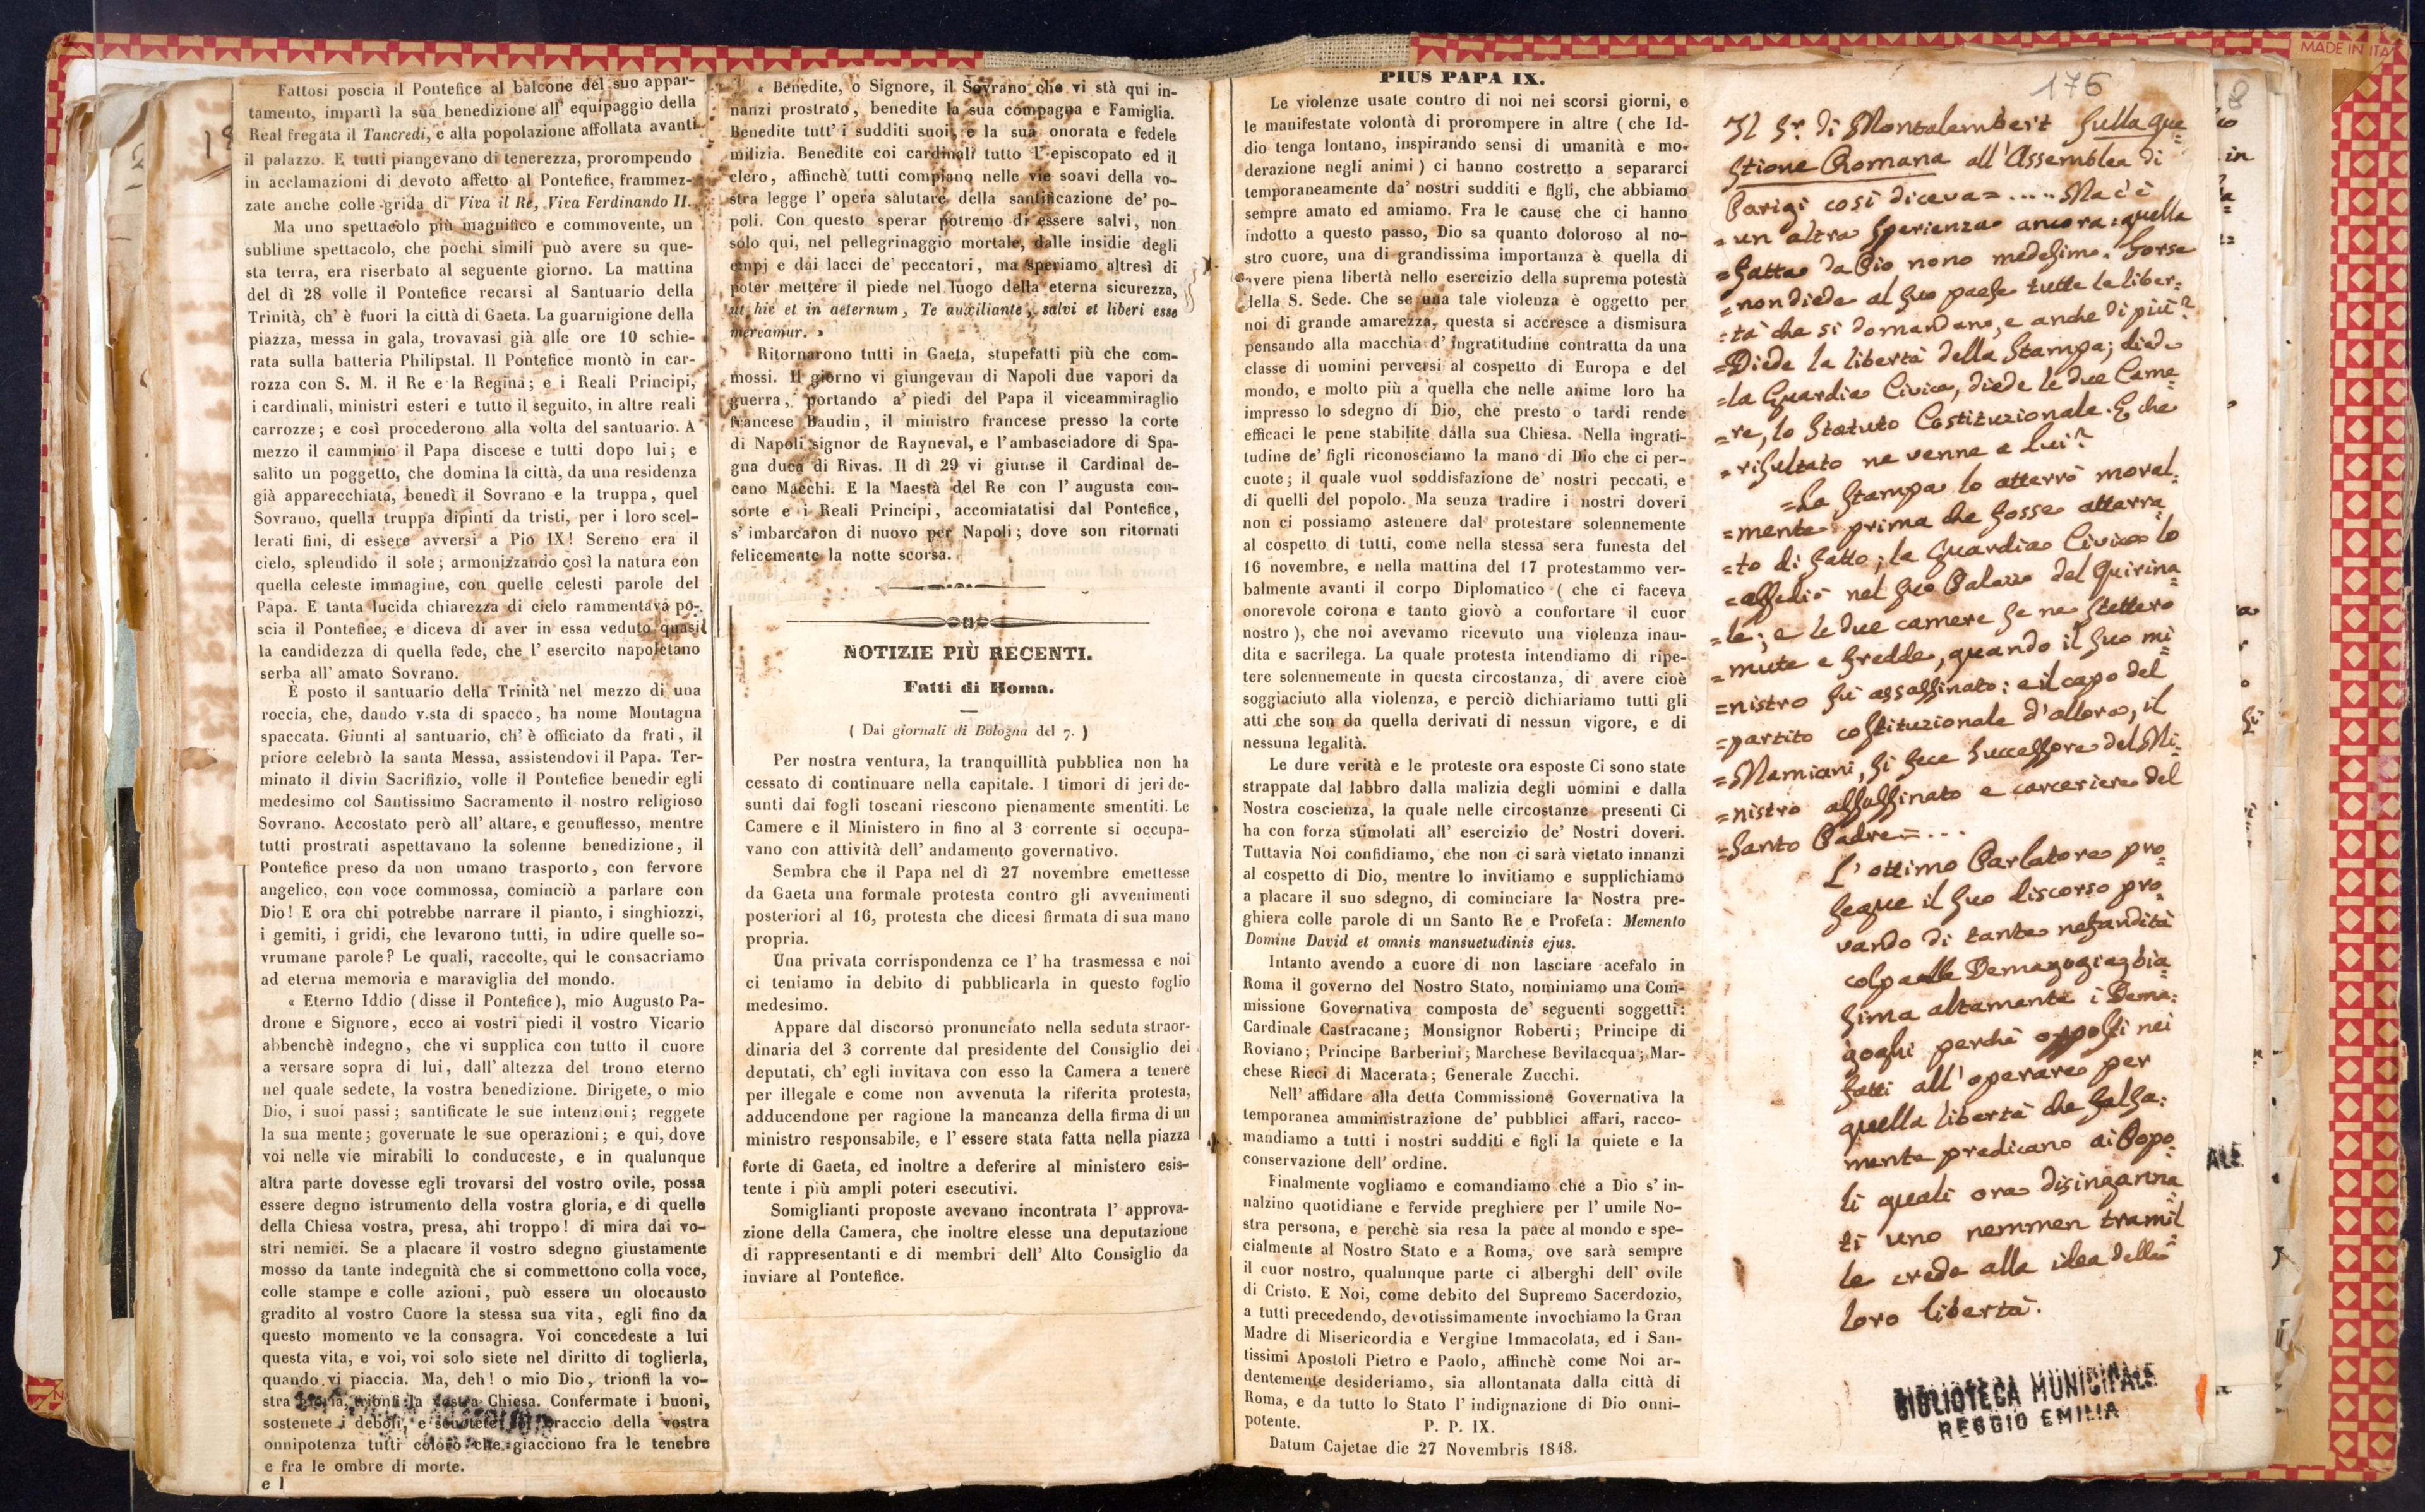 Fattosi poscia il Pontefice al balcone del suo appar-
tamento, impartì la sua benedizione all' equipaggio della
Real fregata il Tancredi, e alla popolazione affollata avanti
il palazzo. E tutti piangevano di tenerezza, prorompendo
in acclamazioni di devoto affetto al Pontefice, frammez-
zate anche colle grida di Viva il Re, Viva Ferdinando II.
Ma uno spettacolo più magnifico e commovente, un
sublime spettacolo, che pochi simili può avere su que-
sta terra, era riserbato al seguente giorno. La mattina
del dì 28 volle il Pontefice recarsi al Santuario della
Trinità, ch' è fuori la città di Gaeta. La guarnigione della
piazza, messa in gala, trovavasi già alle ore 10 schie-
rata sulla batteria Philipstal. Il Pontefice montò in car-
rozza con S. M. il Re e la Regina; e i Reali Principi,
i cardinali, ministri esteri e tutto il seguito, in altre reali
carrozze; e così procederono alla volta del santuario. A
mezzo il cammino il Papa discese e tutti dopo lui; e
salito un poggetto, che domina la città, da una residenza
già apparecchiata, benedì il Sovrano e la truppa, quel
Sovrano, quella truppa dipinti da tristi, per i loro scel-
lerati fini, di essere avversi a Pio IX! Sereno era il
cielo, splendido il sole; armonizzando così la natura con
quella celeste immagine, con quelle celesti parole del
Papa. E tanta lucida chiarezza di cielo rammentava po-
scia il Pontefice, e diceva di aver in essa veduto quasi
la candidezza di quella fede, che l' esercito napoletano
serba all' amato Sovrano.
È posto il santuario della Trinità nel mezzo di una
roccia, che, dando v.sta di spacco, ha nome Montagna
spaccata. Giunti al santuario, ch' è officiato da frati, il
priore celebrò la santa Messa, assistendovi il Papa. Ter-
minato il divin Sacrifizio, volle il Pontefice benedir egli
medesimo col Santissimo Sacramento il nostro religioso
Sovrano. Accostato però all' altare, e genuflesso, mentre
tutti prostrati aspettavano la solenne benedizione, il
Pontefice preso da non umano trasporto, con fervore
angelico, con voce commossa, cominciò a parlare con
Dio! E ora chi potrebbe narrare il pianto, i singhiozzi,
i gemiti, i gridi, che levarono tutti, in udire quelle so-
vrumane parole? Le quali, raccolte, qui le consacriamo
ad eterna memoria e maraviglia del mondo.
« Eterno Iddio (disse il Pontefice), mio Augusto Pa-
drone e Signore, ecco ai vostri piedi il vostro Vicario
abbenchè indegno, che vi supplica con tutto il cuore
a versare sopra di lui, dall' altezza del trono eterno
nel quale sedete, la vostra benedizione. Dirigete, o mio
Dio, i suoi passi; santificate le sue intenzioni; reggete
la sua mente; governate le sue operazioni; e qui, dove
voi nelle vie mirabili lo conduceste, e in qualunque
altra parte dovesse egli trovarsi del vostro ovile, possa
essere degno istrumento della vostra gloria, e di quelle
della Chiesa vostra, presa, ahi troppo! di mira dai vo-
stri nemici. Se a placare il vostro sdegno giustamente
mosso da tante indegnità che si commettono colla voce,
colle stampe e colle azioni, può essere un olocausto
gradito al vostro Cuore la stessa sua vita, egli fino da
questo momento ve la consagra. Voi concedeste a lui
questa vita, e voi, voi solo siete nel diritto di toglierla,
quando vi piaccia. Ma, deh! o mio Dio, trionfi la vo-
stra gloria, trionfi la vostra Chiesa. Confermate i buoni,
sostenete i deboli, e scuotete col braccio della vostra
onnipotenza tutti coloro che giacciono fra le tenebre
e fra le ombre di morte.
e l
« Benedite, o Signore, il Sovrano che vi stà qui in-
nanzi prostrato, benedite la sua compagna e Famiglia.
Benedite tutt' i sudditi suoi, e la sua onorata e fedele
milizia. Benedite coi cardinali tutto l' episcopato ed il
clero, affinchè tutti compiano nelle vie soavi della vo-
stra legge l' opera salutare della santificazione de' po-
poli. Con questo sperar potremo di essere salvi, non
sólo qui, nel pellegrinaggio mortale, dalle insidie degli
empj e dai lacci de' peccatori, ma speriamo altresì di
poter mettere il piede nel luogo della eterna sicurezza,
ut hic et in aeternum, Te auxiliante, salvi et liberi esse
mereamur. »
Ritornarono tutti in Gaeta, stupefatti più che com-
mossi. Il giorno vi giungevan di Napoli due vapori da
guerra, portando a' piedi del Papa il viceammiraglio
francese Baudin, il ministro francese presso la corte
di Napoli signor de Rayneval, e l'ambasciadore di Spa-
gna duca di Rivas. Il dì 29 vi giunse il Cardinal de-
cano Macchi. E la Maestà del Re con l' augusta con-
sorte e i Reali Principi, accomiatatisi dal Pontefice,
s' imbarcaron di nuovo per Napoli; dove son ritornati
felicemente la notte scorsa.
NOTIZIE PIÙ RECENTI.
Fatti di Roma.
( Dai giornali di Bologna del 7. )
Per nostra ventura, la tranquillità pubblica non ha
cessato di continuare nella capitale. I timori di jeri de-
sunti dai fogli toscani riescono pienamente smentiti. Le
Camere e il Ministero in fino al 3 corrente si occupa-
vano con attività dell' andamento governativo.
Sembra che il Papa nel dì 27 novembre emettesse
da Gaeta una formale protesta contro gli avvenimenti
posteriori al 16, protesta che dicesi firmata di sua mano
propria.
Una privata corrispondenza ce l' ha trasmessa e noi
ci teniamo in debito di pubblicarla in questo foglio
medesimo.
Appare dal discorso pronunciato nella seduta straor-
dinaria del 3 corrente dal presidente del Consiglio dei
deputati, ch' egli invitava con esso la Camera a tenere
per illegale e come non avvenuta la riferita protesta,
adducendone per ragione la mancanza della firma di un
ministro responsabile, e l' essere stata fatta nella piazza
forte di Gaeta, ed inoltre a deferire al ministero esis-
tente i più ampli poteri esecutivi.
Somiglianti proposte avevano incontrata l' approva-
zione della Camera, che inoltre elesse una deputazione
di rappresentanti e di membri dell' Alto Consiglio da
inviare al Pontefice.
PIUS PAPA IX.
Le violenze usate contro di noi nei scorsi giorni, e
le manifestate volontà di prorompere in altre ( che Id-
dio tenga lontano, inspirando sensi di umanità e mo-
derazione negli animi ) ci hanno costretto a separarci
temporaneamente da' nostri sudditi e figli, che abbiamo
sempre amato ed amiamo. Fra le cause che ci hanno
indotto a questo passo, Dio sa quanto doloroso al no-
stro cuore, una di grandissima importanza è quella di
avere piena libertà nello esercizio della suprema potestà
della S. Sede. Che se una tale violenza è oggetto per
noi di grande amarezza, questa si accresce a dismisura
pensando alla macchia d' ingratitudine contratta da una
classe di uomini perversi al cospetto di Europa e del
mondo, e molto più a quella che nelle anime loro ha
impresso lo sdegno di Dio, che presto o tardi rende
efficaci le pene stabilite dalla sua Chiesa. Nella ingrati-
tudine de' figli riconosciamo la mano di Dio che ci per-
cuote; il quale vuol soddisfazione de' nostri peccati, e
di quelli del popolo. Ma senza tradire i nostri doveri
non ci possiamo astenere dal protestare solennemente
al cospetto di tutti, come nella stessa sera funesta del
16 novembre, e nella mattina del 17 protestammo ver-
balmente avanti il corpo Diplomatico ( che ci faceva
onorevole corona e tanto giovò a confortare il cuor
nostro ), che noi avevamo ricevuto una violenza inau-
dita e sacrilega. La quale protesta intendiamo di ripe-
tere solennemente in questa circostanza, di avere cioè
soggiaciuto alla violenza, e perciò dichiariamo tutti gli
atti che son da quella derivati di nessun vigore, e di
nessuna legalità.
Le dure verità e le proteste ora esposte Ci sono state
strappate dal labbro dalla malizia degli uomini e dalla
Nostra coscienza, la quale nelle circostanze presenti Ci
ha con forza stimolati all' esercizio de' Nostri doveri.
Tuttavia Noi confidiamo, che non ci sarà vietato innanzi
al cospetto di Dio, mentre lo invitiamo e supplichiamo
a placare il suo sdegno, di cominciare la Nostra pre-
ghiera colle parole di un Santo Re e Profeta: Memento
Domine David et omnis mansuetudinis ejus.
Intanto avendo a cuore di non lasciare acefalo in
Roma il governo del Nostro Stato, nominiamo una Com-
missione Governativa composta de' seguenti soggetti:
Cardinale Castracane; Monsignor Roberti; Principe di
Roviano; Principe Barberini; Marchese Bevilacqua; Mar-
chese Ricci di Macerata; Generale Zucchi.
Nell' affidare alla detta Commissione Governativa la
temporanea amministrazione de' pubblici affari, racco-
mandiamo a tutti i nostri sudditi e figli la quiete e la
conservazione dell' ordine.
Finalmente vogliamo e comandiamo che a Dio s' in-
nalzino quotidiane e fervide preghiere per l' umile No-
stra persona, e perchè sia resa la pace al mondo e spe-
cialmente al Nostro Stato e a Roma, ove sarà sempre
il cuor nostro, qualunque parte ci alberghi dell' ovile
di Cristo. E Noi, come debito del Supremo Sacerdozio,
a tutti precedendo, devotissimamente invochiamo la Gran
Madre di Misericordia e Vergine Immacolata, ed i San-
tissimi Apostoli Pietro e Paolo, affinchè come Noi ar-
dentemente desideriamo, sia allontanata dalla città di
Roma, e da tutto lo Stato l' indignazione di Dio onni-
potente.
P. P. IX.
Datum Cajetae die 27 Novembris 1848.
176
Il Sr. di Montalembert sulla que=
stione Romana all'Assemblea di
Parigi così diceva= ..... Ma c'è
= un altra sperienza ancora: quella
= fatta da Pio nono medesimo. Forse
= non diede al suo paese tutte le liber=
= tà che si domandano, e anche di più?
= Diede la libertà della stampa; diede
= la Guardia Civica, diede le due Came=
= re, lo Statuto Costituzionale. E che
= risultato ne venne a lui?
= La stampa lo atterrò moral=
= mente prima che fosse atterra=
= to di fatto; la Guardia Civica lo
= assediò nel suo Palazzo del Quirina=
= le; e le due camere se ne stettero
= mute e fredde, quando il suo mi=
= nistro fù assassinato: e il capo del
= partito costituzionale d'allora, il
= Mamiani, si fece successore del Mi=
= nistro assassinato e carceriere del
= Santo Padre= ...
L' ottimo Parlatore pro=
segue il suo discorso pro=
vando di tante nefandità
colpa alla Demagogia, e bia=
sima altamente i Dema=
goghi perchè opposti nei
fatti all'operare per
quella libertà che falsa=
mente predicano ai Popo=
li quali ora disinganna=
ti uno nemmen tramil=
le crede alla idea della
loro libertà.
BIBLIOTECA MUNICIPALE
REGGIO EMILIA
MADE IN ITA